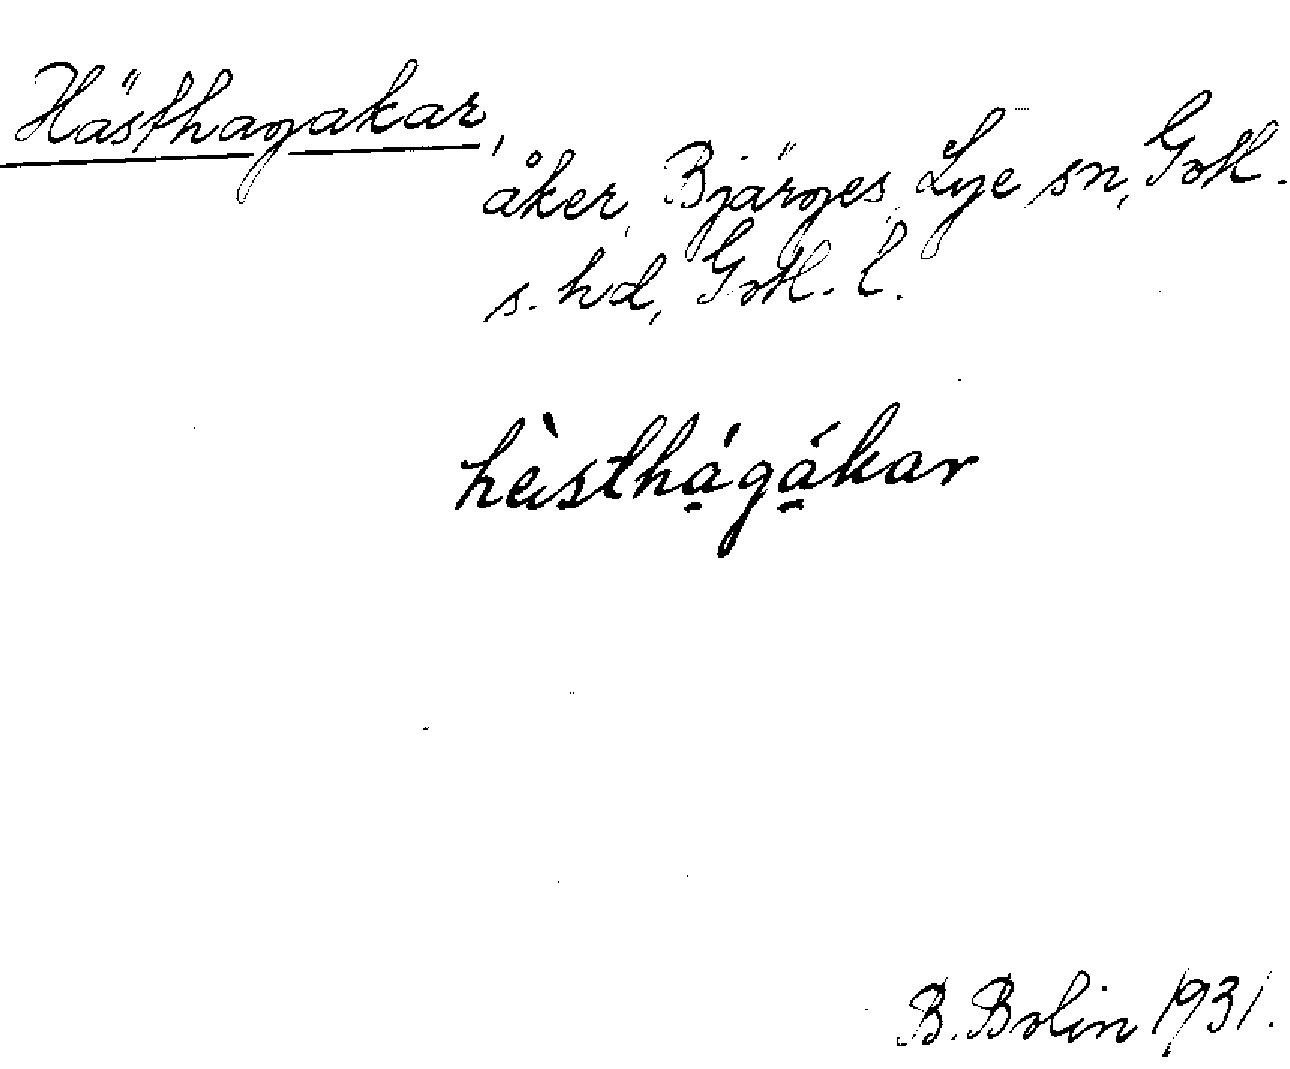 Hästhagakar,
åker, Bjärges, Lye sn, Gotl.
s. hd, Gotl. l.
hèisthá̱gá̱kar
B. Bolin 1931.